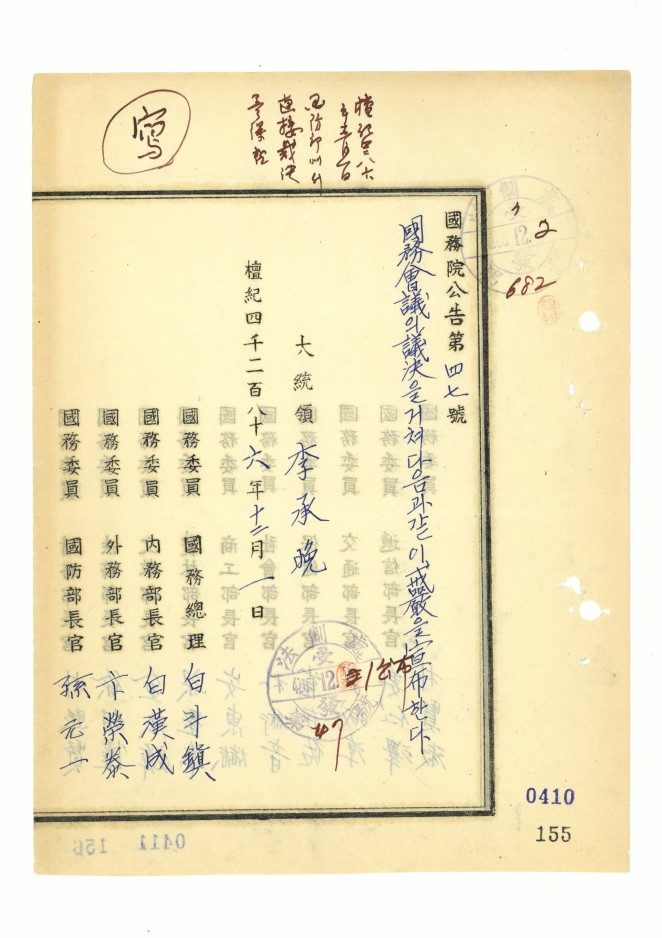 寫
檀紀四二八六
國防部에서
直接裁決
國務院公告第四七號
國務會議의議決을거쳐다음과같이戒嚴을宣布한다
大統領 李承晩
檀紀四千二百八十六年十二月一日
國務委員 國務總理 白斗鎭
國務委員 內務部長官 白漢成
國務委員 外務部長官 卞榮泰
國務委員 國防部長官 孫元一
12. 2
682
法制
12.
1公布
47
0410
155
0411 156